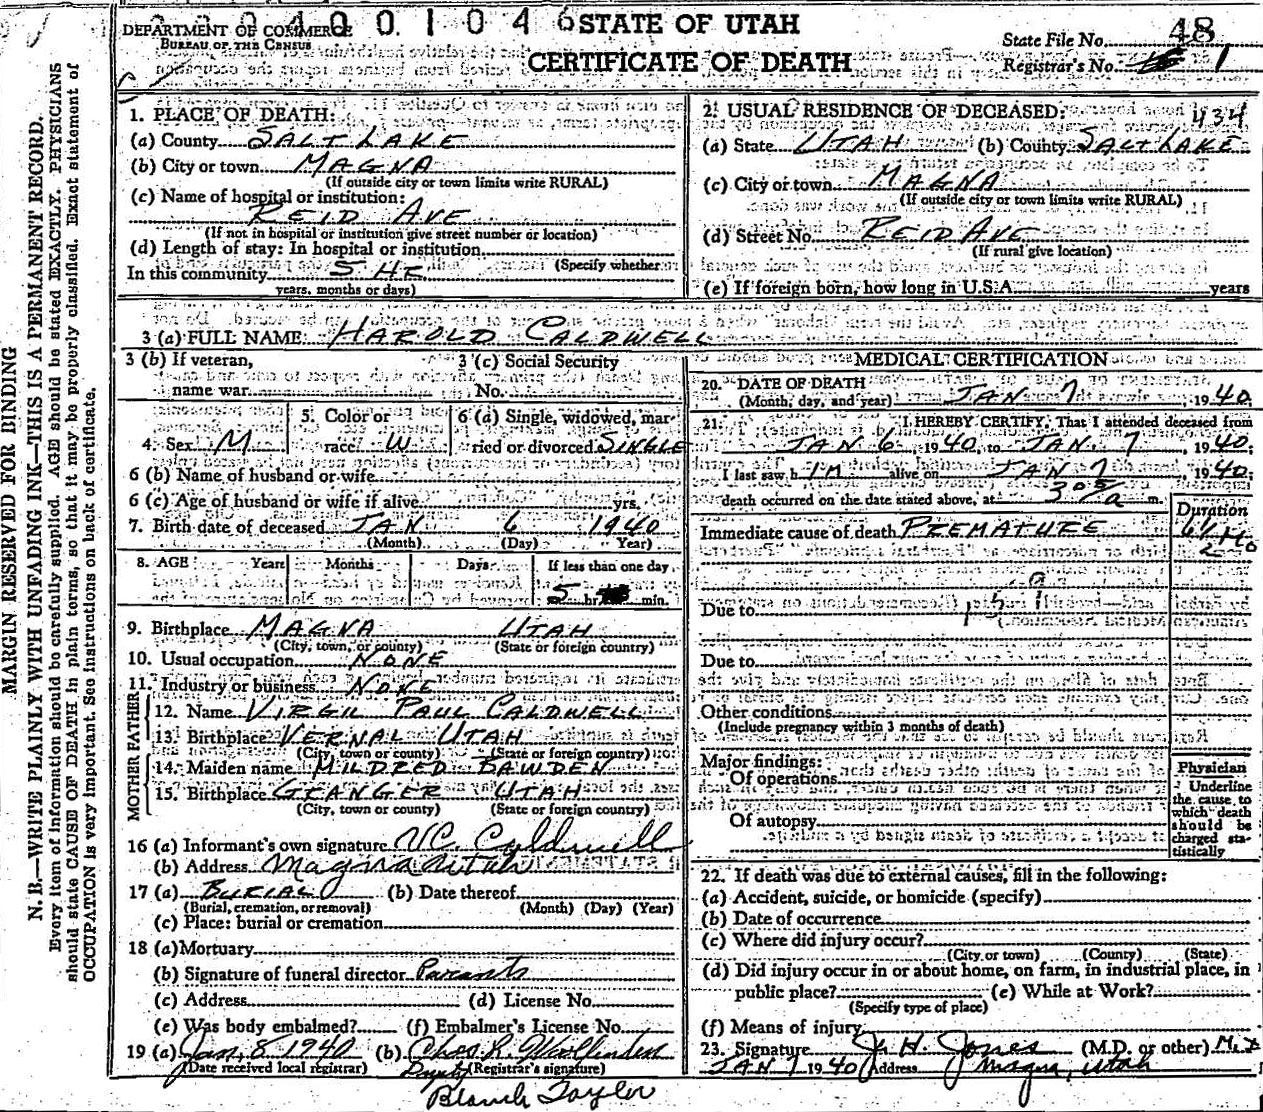 0 1 0 4 6
DEPARTMENT OF COMMERCE
BUREAU OF THE CENSUS
STATE OF UTAH
CERTIFICATE OF DEATH
State File No. 48
Registrar's No. 1
MARGIN RESERVED FOR BINDING
N. B.—WRITE PLAINLY WITH UNFADING INK—THIS IS A PERMANENT RECORD.
Every item of information should be carefully supplied. AGE should be stated EXACTLY. PHYSICIANS
should state CAUSE OF DEATH in plain terms, so that it may be properly classified. Exact statement of
OCCUPATION is very important. See instructions on back of certificate.
1. PLACE OF DEATH:
(a) County SALT LAKE
(b) City or town MAGNA
(If outside city or town limits write RURAL)
(c) Name of hospital or institution:
REID AVE
(If not in hospital or institution give street number or location)
(d) Length of stay: In hospital or institution
(Specify whether
In this community 5 HR
years, months or days)
2. USUAL RESIDENCE OF DECEASED: 434
(a) State UTAH (b) County SALT LAKE
(c) City or town MAGNA
(If outside city or town limits write RURAL)
(d) Street No. REID AVE
(If rural give location)
(e) If foreign born, how long in U.S.A. years
3 (a) FULL NAME HAROLD CALDWELL
3 (b) If veteran,
name war
3 (c) Social Security
No.
4. Sex M
5. Color or
race W
6 (a) Single, widowed, mar-
ried or divorced SINGLE
6 (b) Name of husband or wife
6 (c) Age of husband or wife if alive yrs.
7. Birth date of deceased JAN 6 1940
(Month) (Day) (Year)
8. AGE Years Months Days If less than one day
5 hr. min.
9. Birthplace MAGNA UTAH
(City, town, or county) (State or foreign country)
10. Usual occupation NONE
11. Industry or business NONE
FATHER
12. Name VIRGIL PAUL CALDWELL
13. Birthplace VERNAL UTAH
(City, town or county) (State or foreign country)
MOTHER
14. Maiden name MILDRED BAWDEN
15. Birthplace GRANGER UTAH
(City, town or county) (State or foreign country)
16 (a) Informant's own signature V.C. Caldwell
(b) Address Magna Utah
17 (a) BURIAL (b) Date thereof
(Burial, cremation, or removal) (Month) (Day) (Year)
(c) Place: burial or cremation
18 (a) Mortuary
(b) Signature of funeral director Parents
(c) Address (d) License No.
(e) Was body embalmed? (f) Embalmer's License No.
19 (a) Jan. 8 1940 (b) Chas R.
(Date received local registrar) Deputy (Registrar's signature)
Blanch Taylor
MEDICAL CERTIFICATION
20. DATE OF DEATH
(Month, day, and year) JAN 7, 1940
21. I HEREBY CERTIFY, That I attended deceased from
JAN 6, 1940, to JAN. 7, 1940;
I last saw h IM alive on JAN 7 1940;
death occurred on the date stated above, at 3 05 a m.
Duration
Immediate cause of death PREMATURE 6 1/2 Mo
Due to
Due to
Other conditions
(Include pregnancy within 3 months of death)
Major findings:
Of operations
Of autopsy
Physician
Underline
the cause to
which death
should be
charged sta-
tistically
22. If death was due to external causes, fill in the following:
(a) Accident, suicide, or homicide (specify)
(b) Date of occurrence
(c) Where did injury occur?
(City or town) (County) (State)
(d) Did injury occur in or about home, on farm, in industrial place, in
public place? (e) While at Work?
(Specify type of place)
(f) Means of injury
23. Signature J. H. Jones (M.D. or other) M.D
JAN 7 1940 Address Magna, Utah